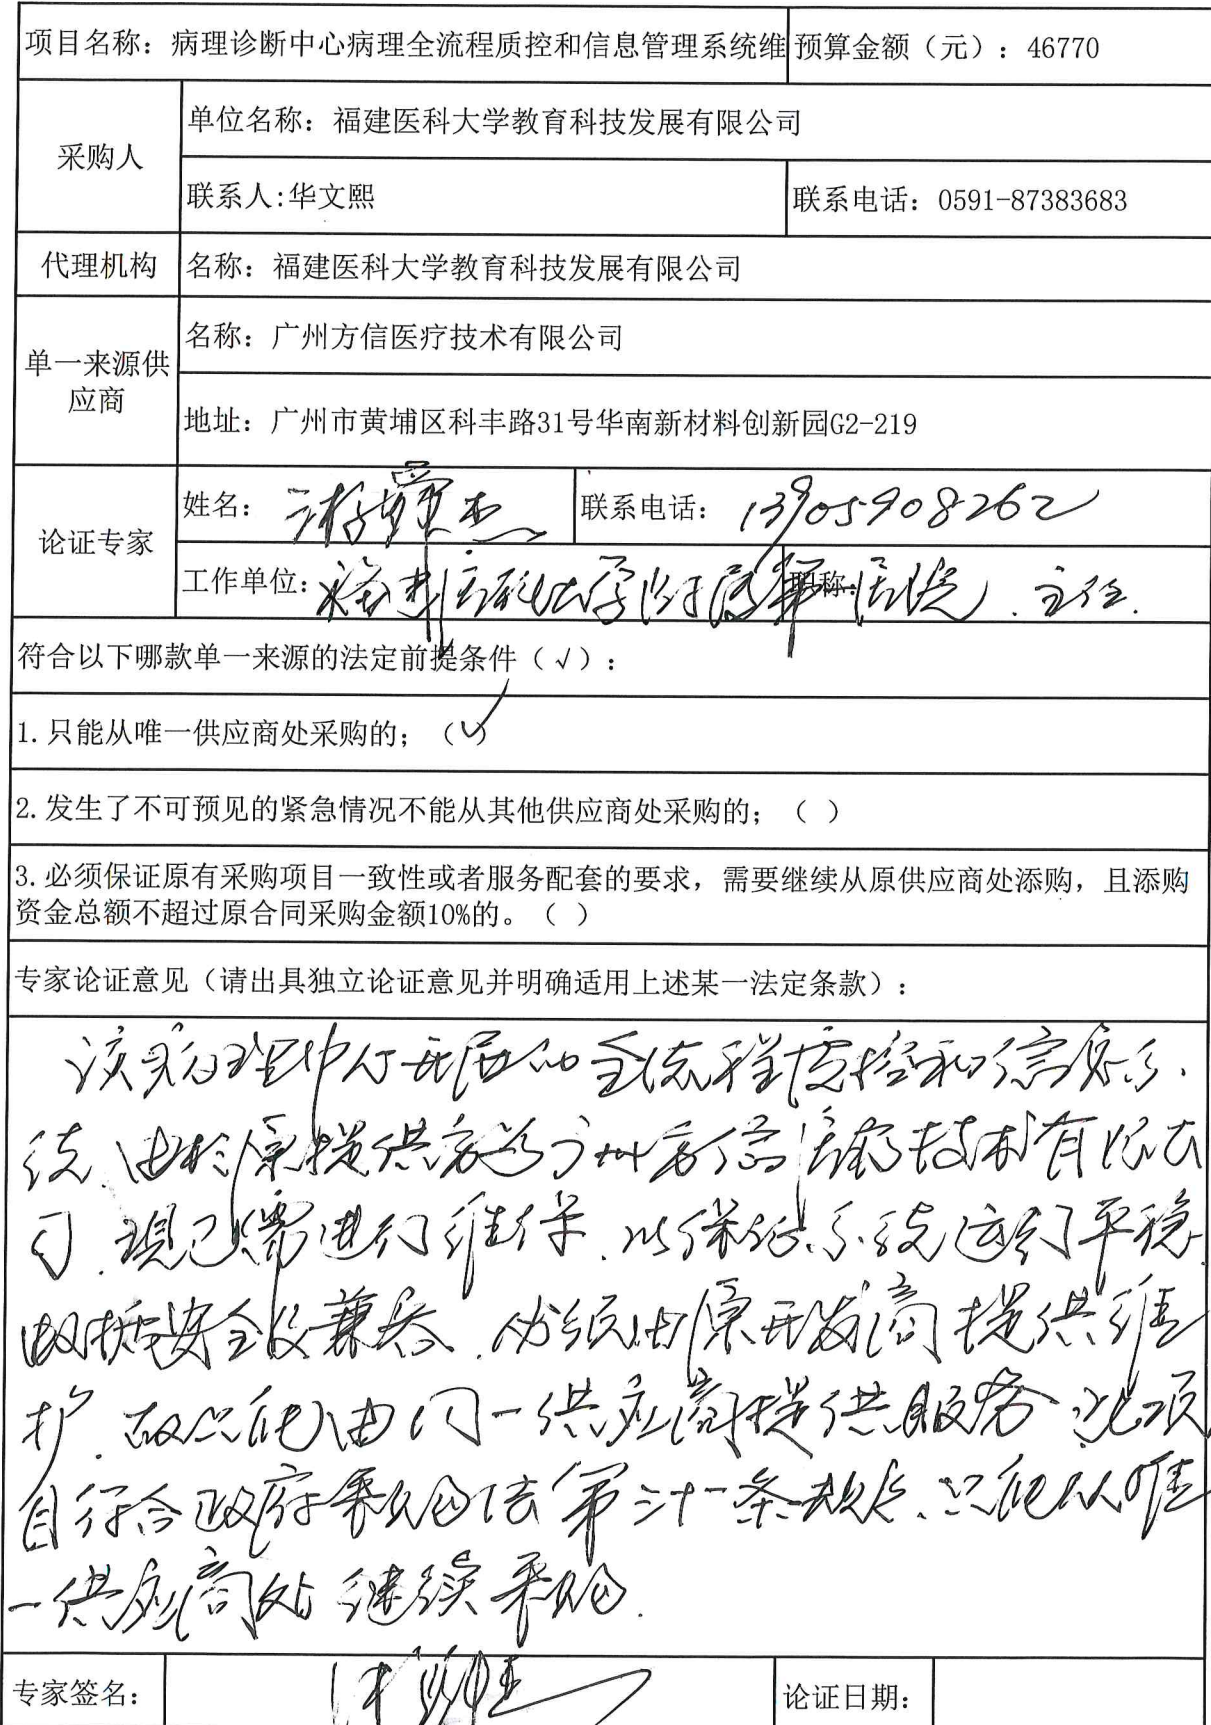 项目名称：病理诊断中心病理全流程质控和信息管理系统维 预算金额（元）：46770
采购人
单位名称：福建医科大学教育科技发展有限公司
联系人:华文熙 联系电话：0591-87383683
代理机构 名称：福建医科大学教育科技发展有限公司
单一来源供应商
名称：广州方信医疗技术有限公司
地址：广州市黄埔区科丰路31号华南新材料创新园G2-219
论证专家
姓名： 联系电话：13905908262
工作单位：福建医科大学附属第一医院 职称： 主任
符合以下哪款单一来源的法定前提条件（√）：
1.只能从唯一供应商处采购的；（√）
2.发生了不可预见的紧急情况不能从其他供应商处采购的；（ ）
3.必须保证原有采购项目一致性或者服务配套的要求，需要继续从原供应商处添购，且添购
资金总额不超过原合同采购金额10%的。（ ）
专家论证意见（请出具独立论证意见并明确适用上述某一法定条款）：
开展的全流程质控和信息系
统.由於原提供方为广州方信医疗技术有限公
司.现已需进行维保.以保证系统运行平稳.
数据安全及兼容.必须由原开发商提供维
护.故只能由同一供应商提供服务.此项
目符合政府采购法第三十一条规定.只能从唯
一供应商处继续采购.
专家签名： 论证日期：